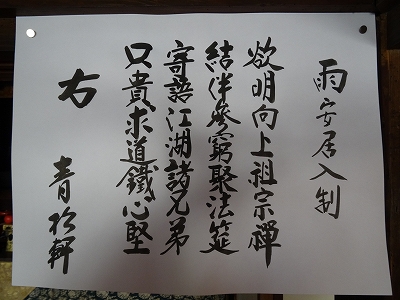 雨安居入制
欲明向上祖宗禪
結伴參窮聚法筵
寄語江湖諸兄弟
只貴求道鐵心堅
右 青松軒